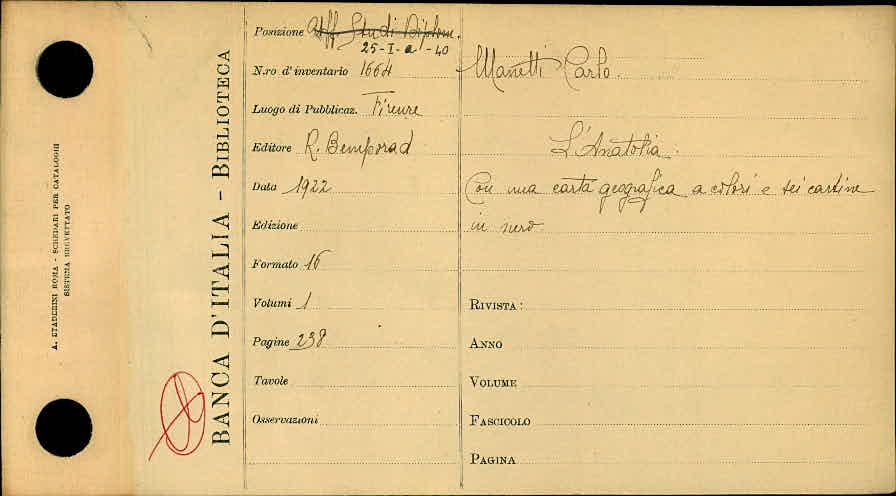 A. STADERINI ROMA - SCHEDARI PER CATALOGHI
SISTEMA BREVETTATO
BANCA D'ITALIA - BIBLIOTECA
Posizione Uff Studi Diplom.
25-I-a-40
N.ro d'inventario 1664
Luogo di Pubblicaz. Firenze
Editore R. Bemporad
Data 1922
Edizione
Formato 16
Volumi 1
Pagine 238
Tavole
Osservazioni
Manetti Carlo.
L'Anatolia.
Con una carta geografica a colori e sei cartine
in nero
RIVISTA:
ANNO
VOLUME
FASCICOLO
PAGINA